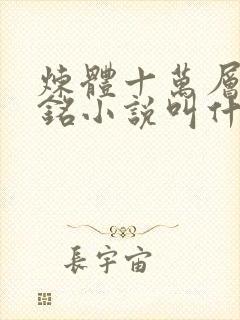 煉體十萬層
銘小說叫什
長宇宙